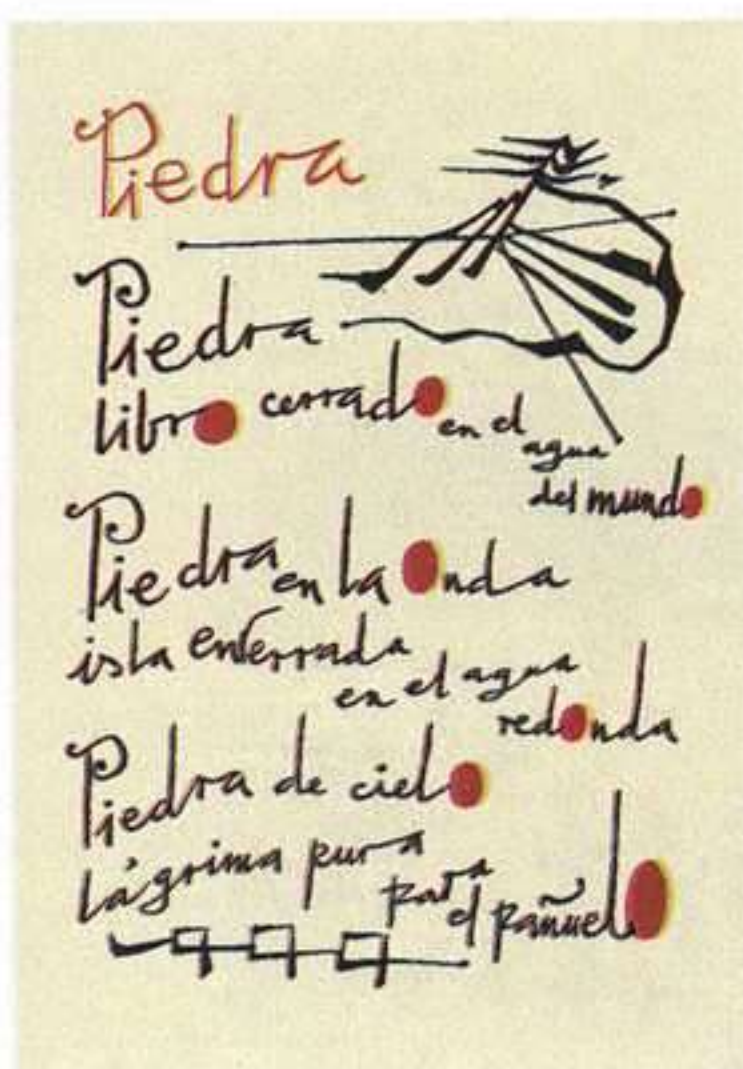 Piedra
Piedra
libro cerrado en el
agua
del mundo
Piedra en la onda
isla enterrada
en el agua
redonda
Piedra de cielo
lágrima pura
para
el pañuelo